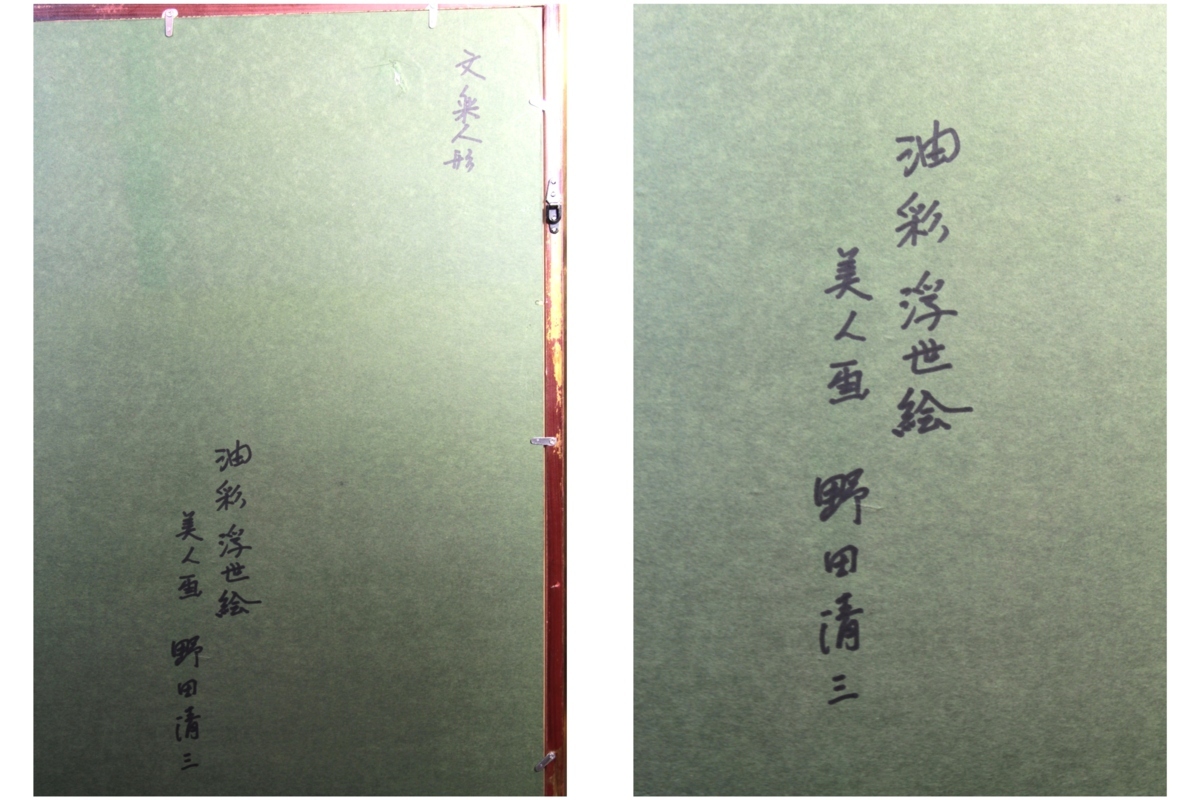 文楽人形
油彩浮世絵
美人画 野田清三
油彩浮世絵
美人画 野田清三